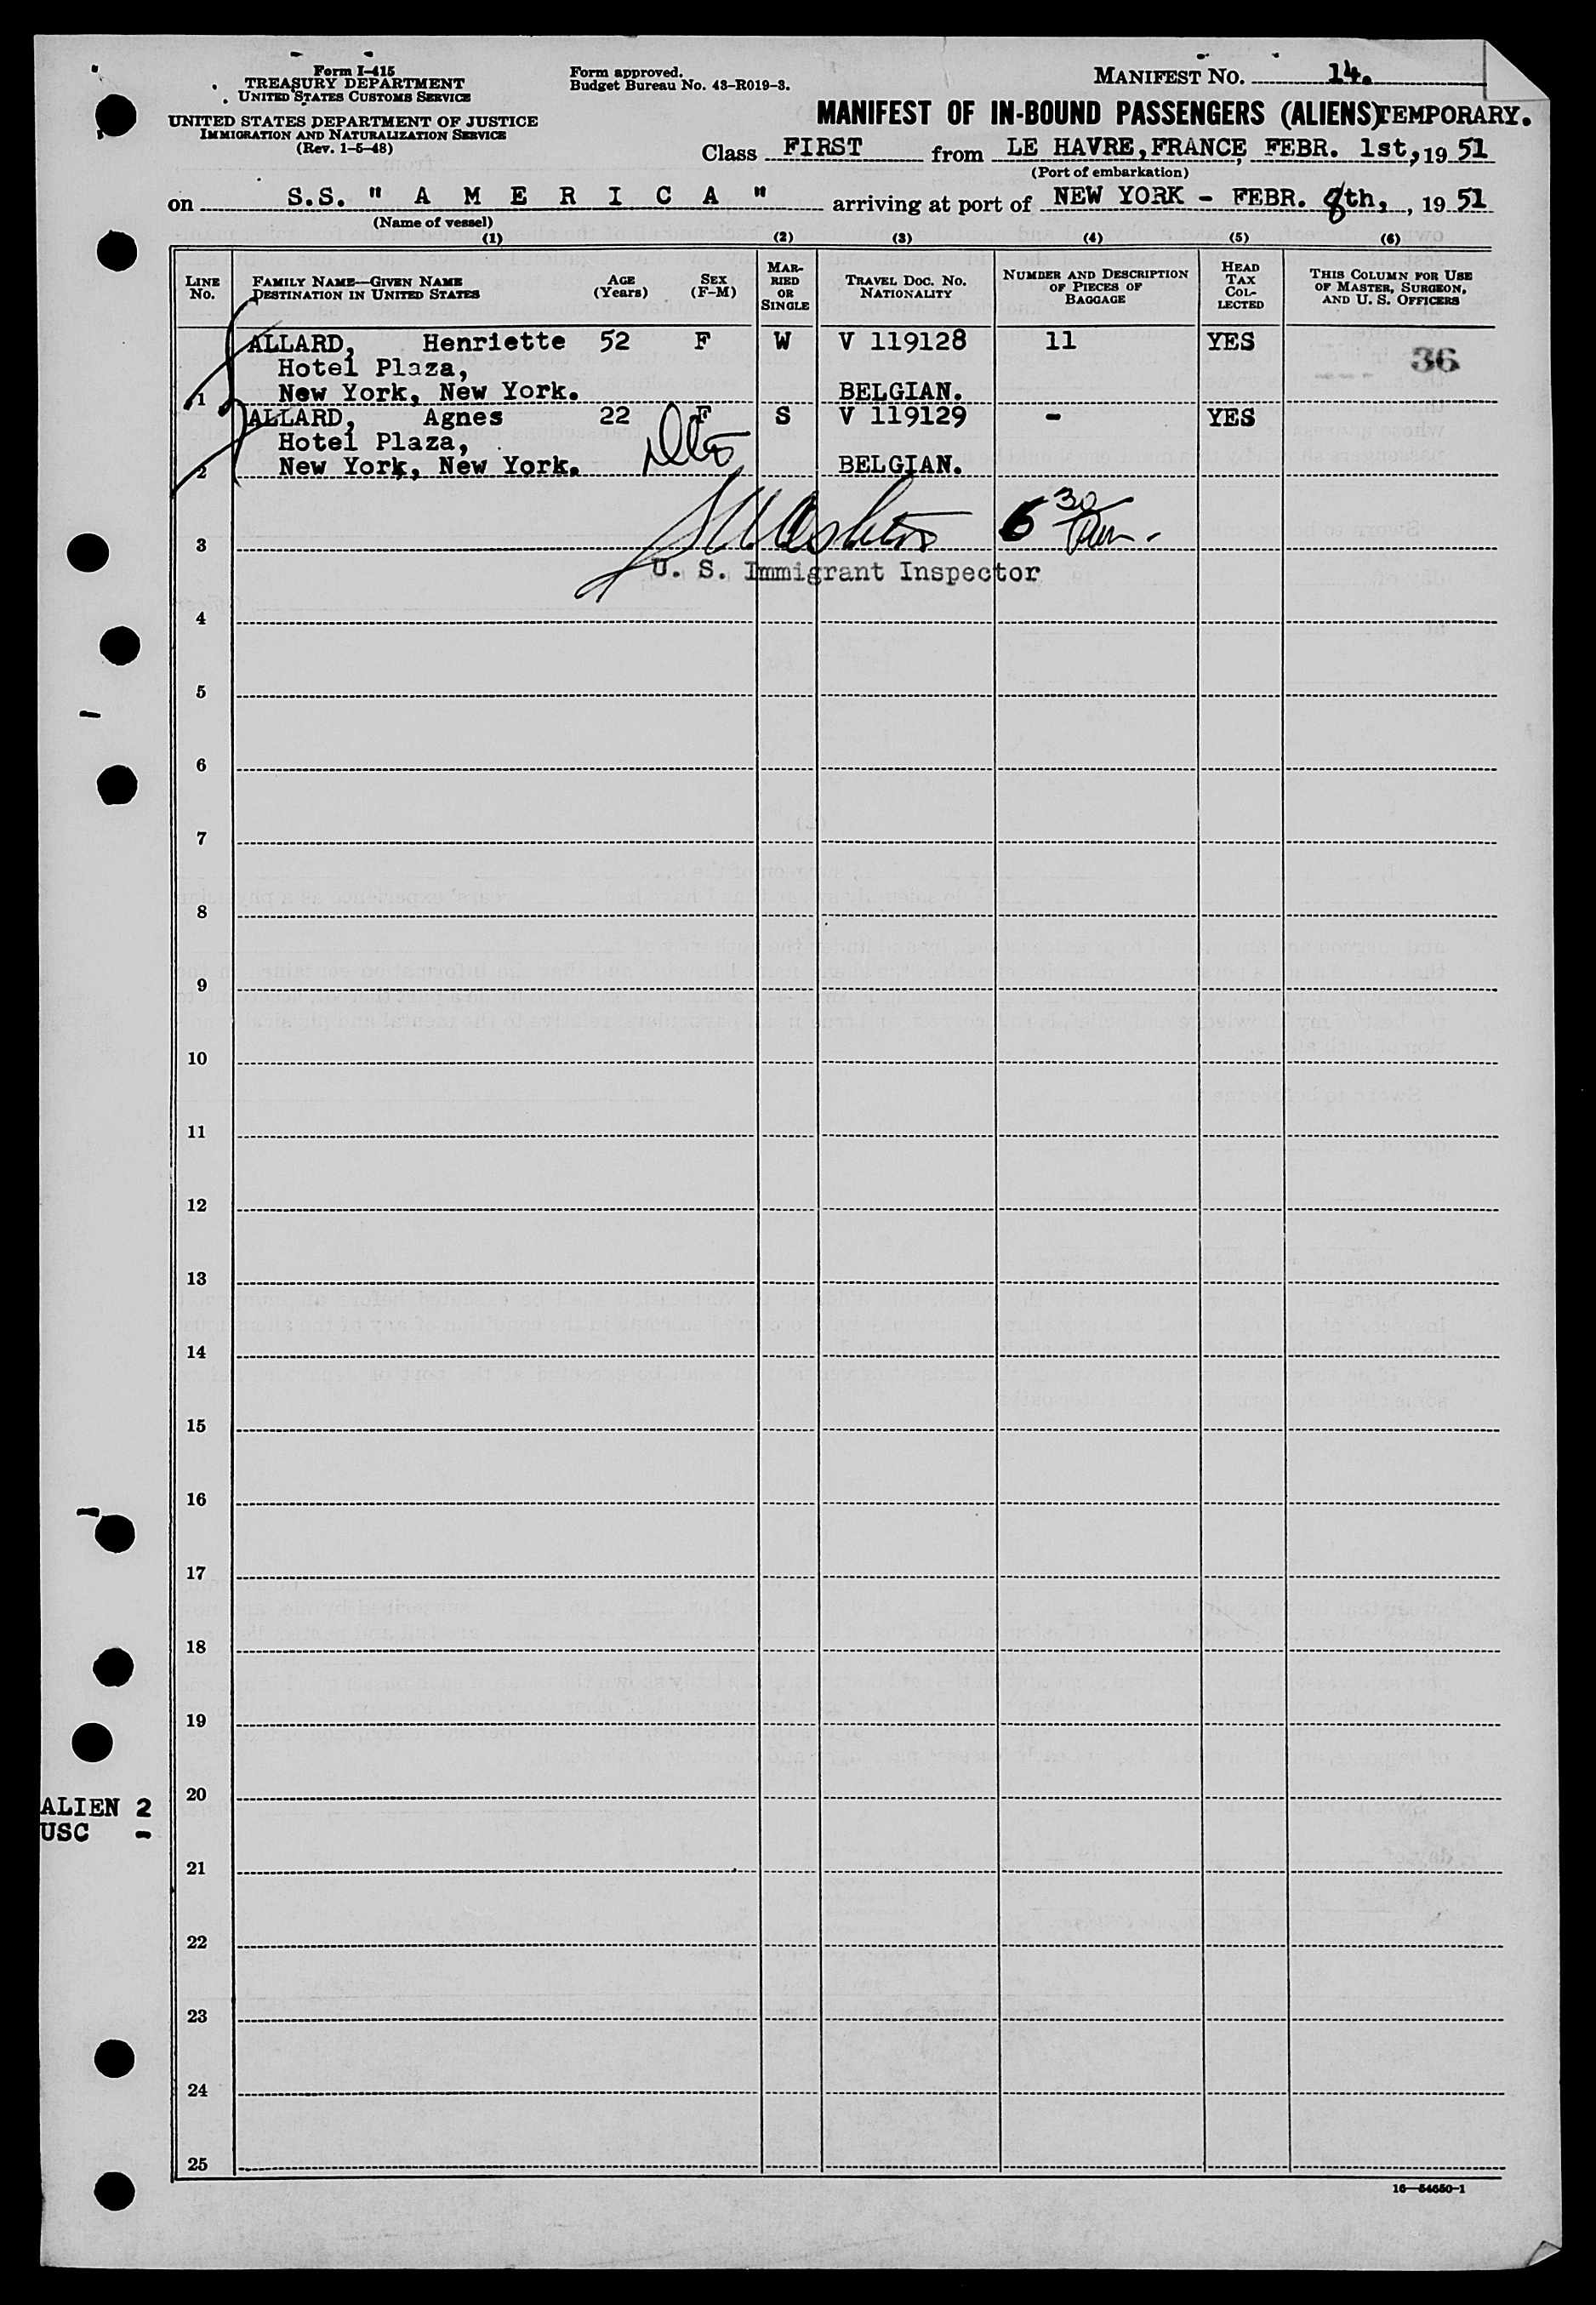 Form I-415
TREASURY DEPARTMENT
UNITED STATES CUSTOMS SERVICE
UNITED STATES DEPARTMENT OF JUSTICE
IMMIGRATION AND NATURALIZATION SERVICE
(Rev. 1-5-48)
Form approved.
Budget Bureau No. 43-R019-3.
MANIFEST NO. 14.
MANIFEST OF IN-BOUND PASSENGERS (ALIENS) TEMPORARY.
Class FIRST from LE HAVRE, FRANCE, FEBR. 1st, 19 51
(Port of embarkation)
on S.S. " A M E R I C A " arriving at port of NEW YORK - FEBR. 8th, , 19 51
(Name of vessel)
(1) (2) (3) (4) (5) (6)
LINE No. FAMILY NAME—GIVEN NAME DESTINATION IN UNITED STATES AGE (Years) SEX (F-M) MARRIED OR SINGLE TRAVEL DOC. NO. NATIONALITY NUMBER AND DESCRIPTION OF PIECES OF BAGGAGE HEAD TAX COLLECTED THIS COLUMN FOR USE OF MASTER, SURGEON, AND U. S. OFFICERS
ALLARD, Henriette 52 F W V 119128 11 YES 36
Hotel Plaza,
1 New York, New York. BELGIAN.
ALLARD, Agnes 22 F S V 119129 - YES
Hotel Plaza,
2 New York, New York. BELGIAN.
3 6 30
U. S. Immigrant Inspector
4
5
6
7
8
9
10
11
12
13
14
15
16
17
18
19
20
ALIEN 2
USC -
21
22
23
24
25
16—54650-1